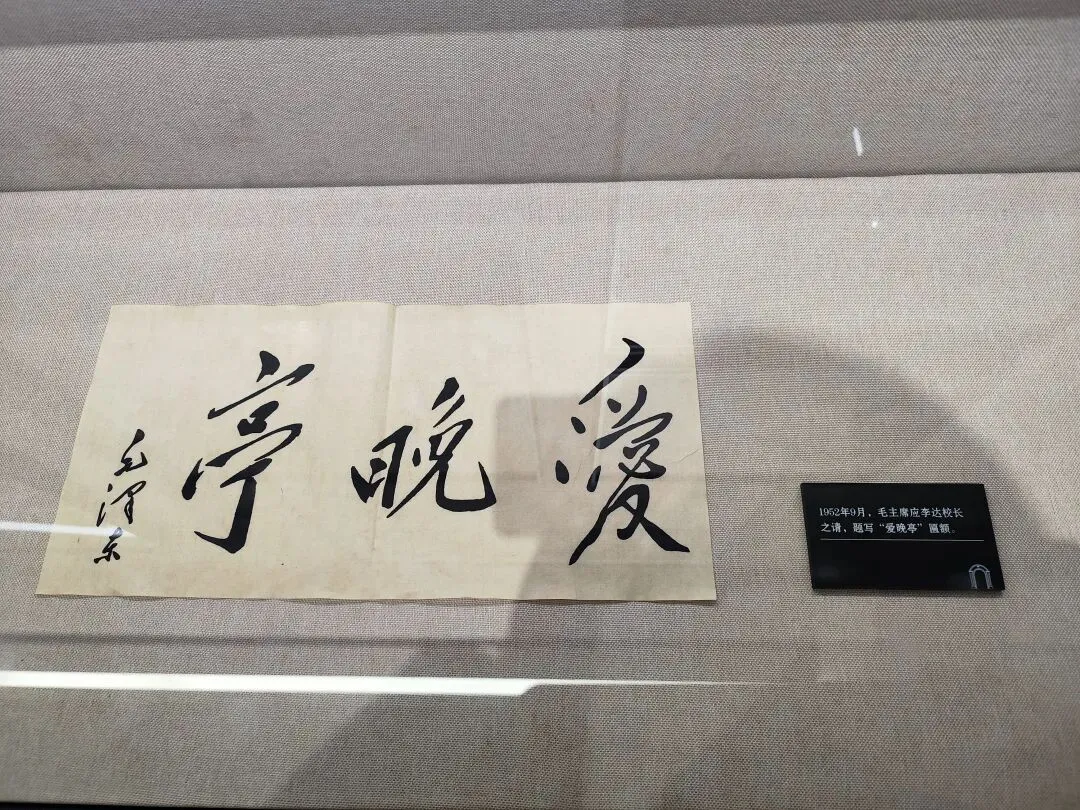 愛晚亭
毛澤东
1952年9月，毛主席应李达校长
之请，题写“爱晚亭”匾额。